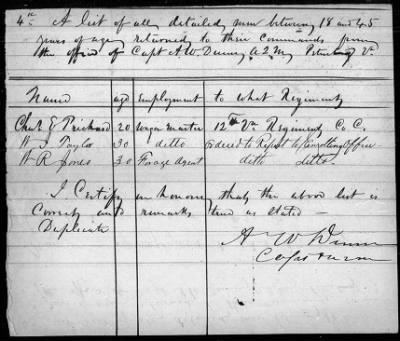 4th A list of all detailed men between 18 and 45
years of age returned to their commands from
the office of Capt A. W. Dunn A.Q.M. Petersburg Va
Name age Employment to what Regiment
Chas E Prichard 20 wagon master 12th Va Regiment, Co C.
W. J. Taylor 30 ditto ordered to Report to Enrolling Officer
W R Jones 30 Forage Agent ditto ditto
I Certify on honor that the above list is
Correct and remarks true as stated
Duplicate
A W Dunn